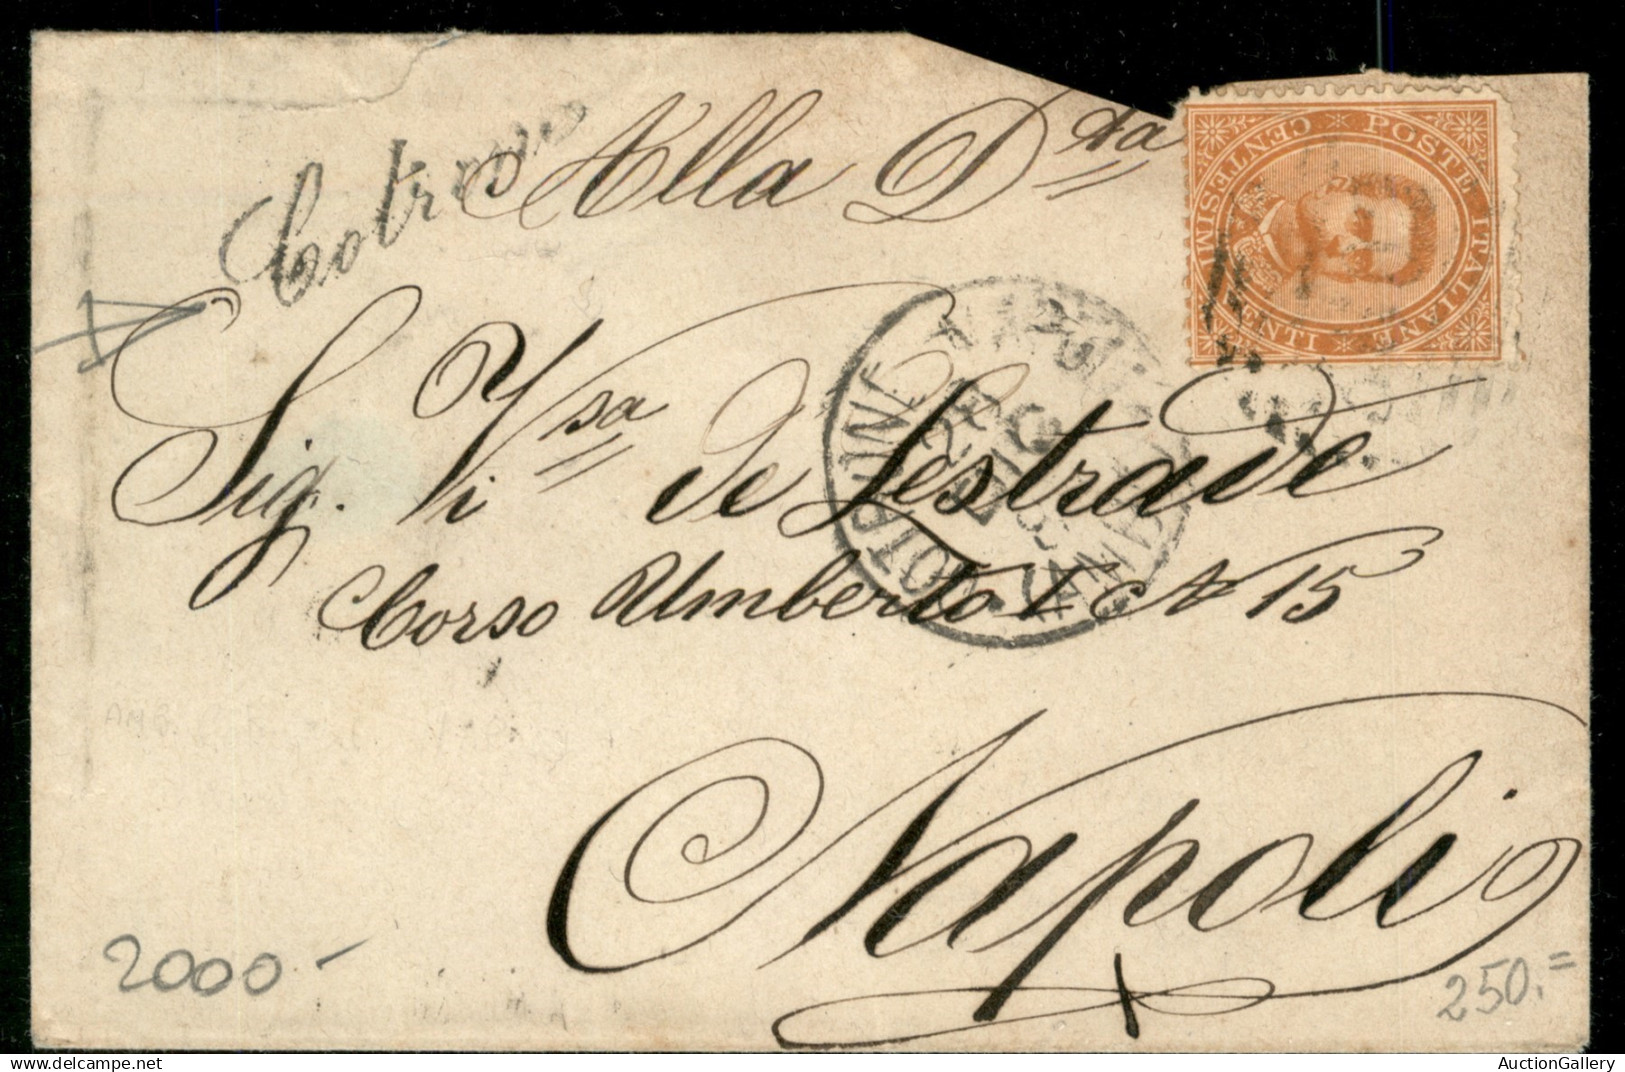 Cotrone
Alla D.ta
POSTE ITALIANE
CENTESIMI VENTI
Sig. Vi.sa de Lestrade
COTRONE
DIC
Corso Umberto I N 15
Napoli
2000-
250.=
AuctionGallery